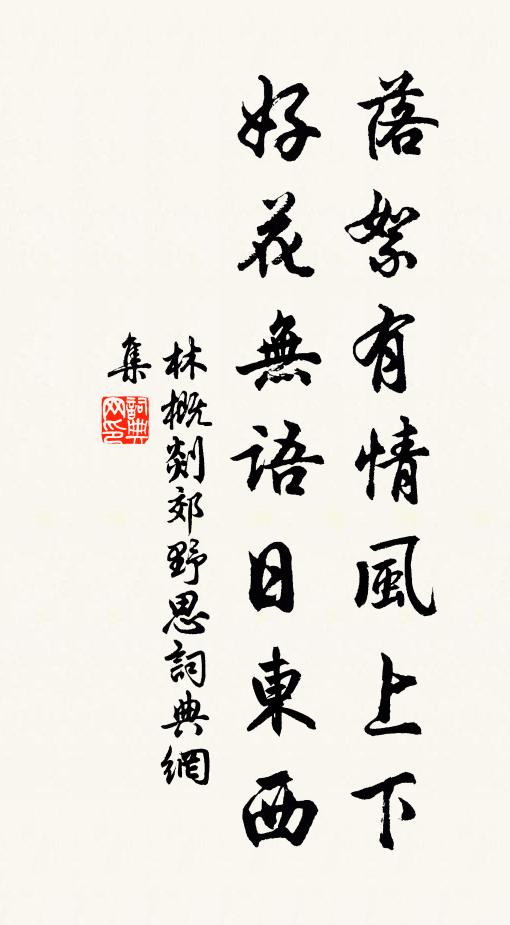 落絮有情風上下
好花無語日東西
林概剡郊野思詞典網
集
詞典
网印